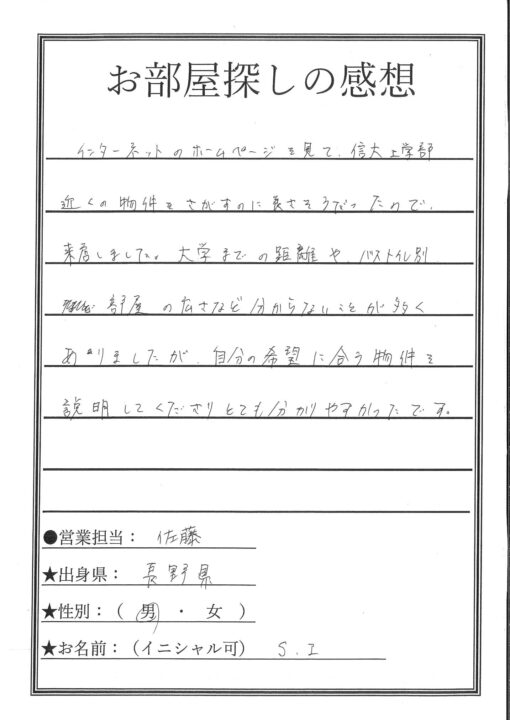 お部屋探しの感想
インターネットのホームページを見て、信大工学部
近くの物件をさがすのに良さそうだったので、
来店しました。大学までの距離や バストイレ別
部屋の広さなど分からないことが多く
ありましたが、自分の希望に合う物件を
説明してくださりとても分かりやすかったです。
●営業担当： 佐藤
★出身県： 長野県
★性別：（ 男 ・ 女 ）
★お名前：（イニシャル可） S.I